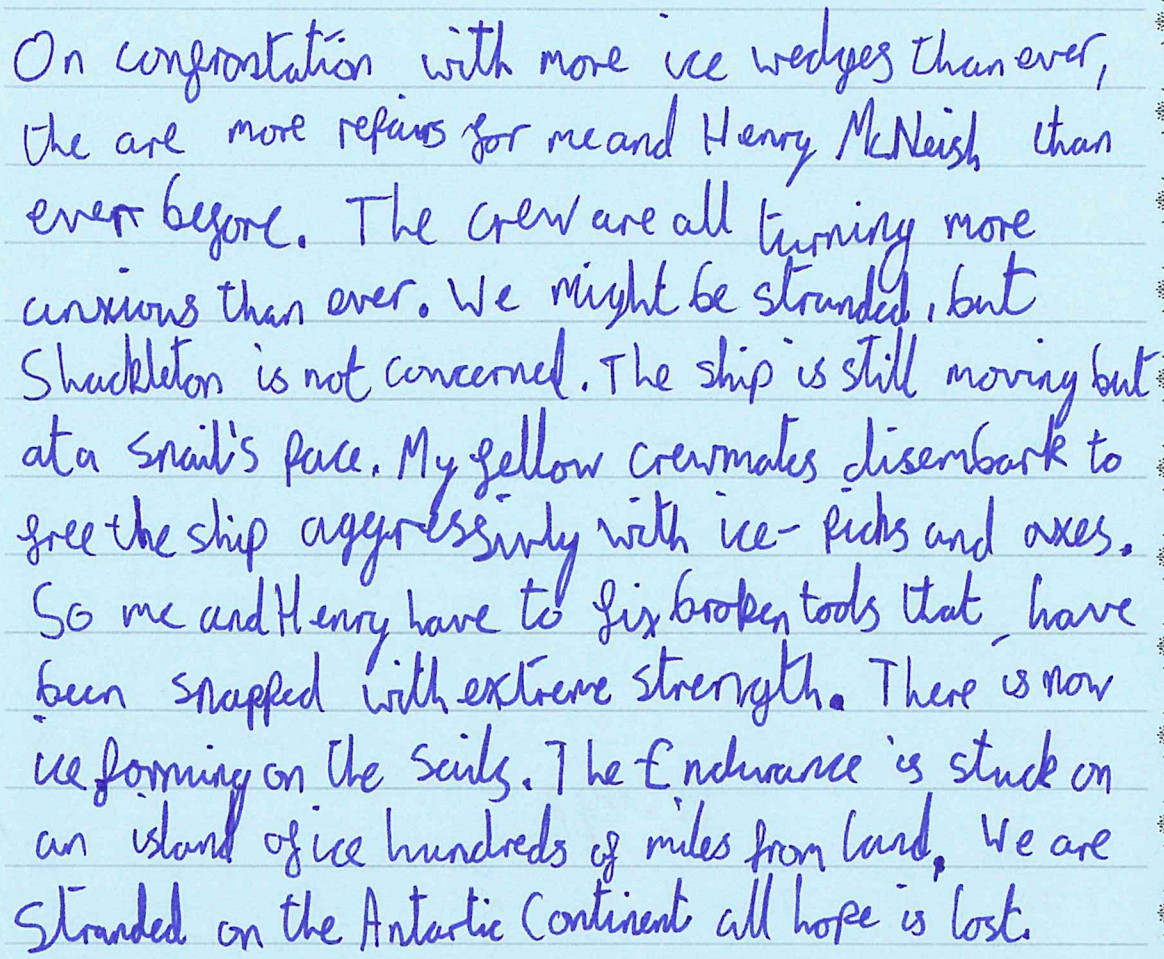 On confrostation with more ice wedges than ever,
the are more repairs for me and Henry McNeish than
ever before. The crew are all turning more
anxious than ever. We might be stranded, but
Shackleton is not concerned. The ship is still moving but
at a snail's pace. My fellow crewmates disembark to
free the ship aggressivly with ice-picks and axes.
So me and Henry have to fix broken tools that have
been snapped with extreme strength. There is now
ice forming on the sails. The Endurance is stuck on
an island of ice hundreds of miles from land. We are
Stranded on the Antartic Continent all hope is lost.